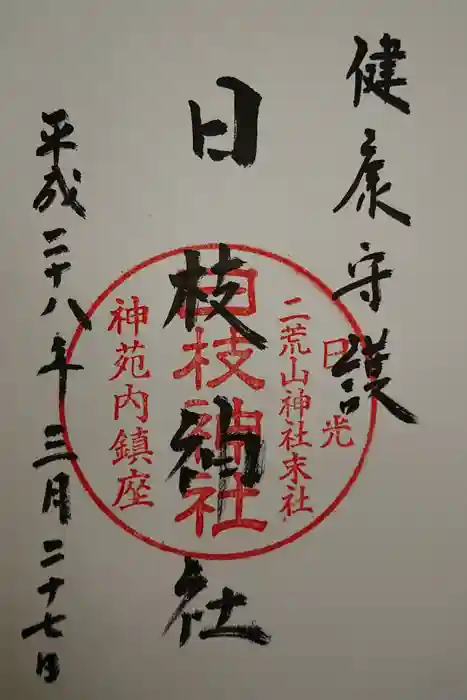 健康守護
日枝神社
平成二十八年三月二十七日
日光
二荒山神社末社
日枝神社
神苑内鎮座